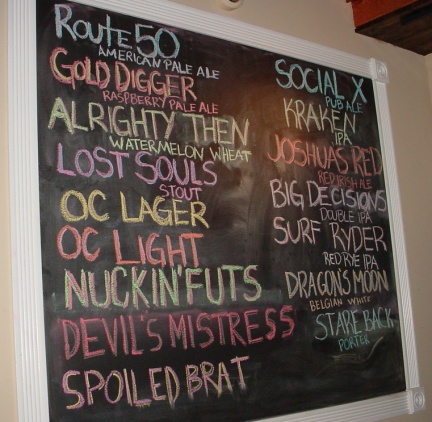 Route 50
AMERICAN PALE ALE
GOLD DIGGER
RASPBERRY PALE ALE
ALRIGHTY THEN
WATERMELON WHEAT
LOST SOULS
STOUT
OC LAGER
OC LIGHT
NUCKIN'FUTS
DEVIL'S MISTRESS
SPOILED BRAT
SOCIAL X
PUB ALE
KRAKEN
IPA
JOSHUA'S RED
RED IRISH ALE
BIG DECISIONS
DOUBLE IPA
SURF RYDER
RED RYE IPA
DRAGON'S MOON
BELGIAN WHITE
STARE BACK
PORTER